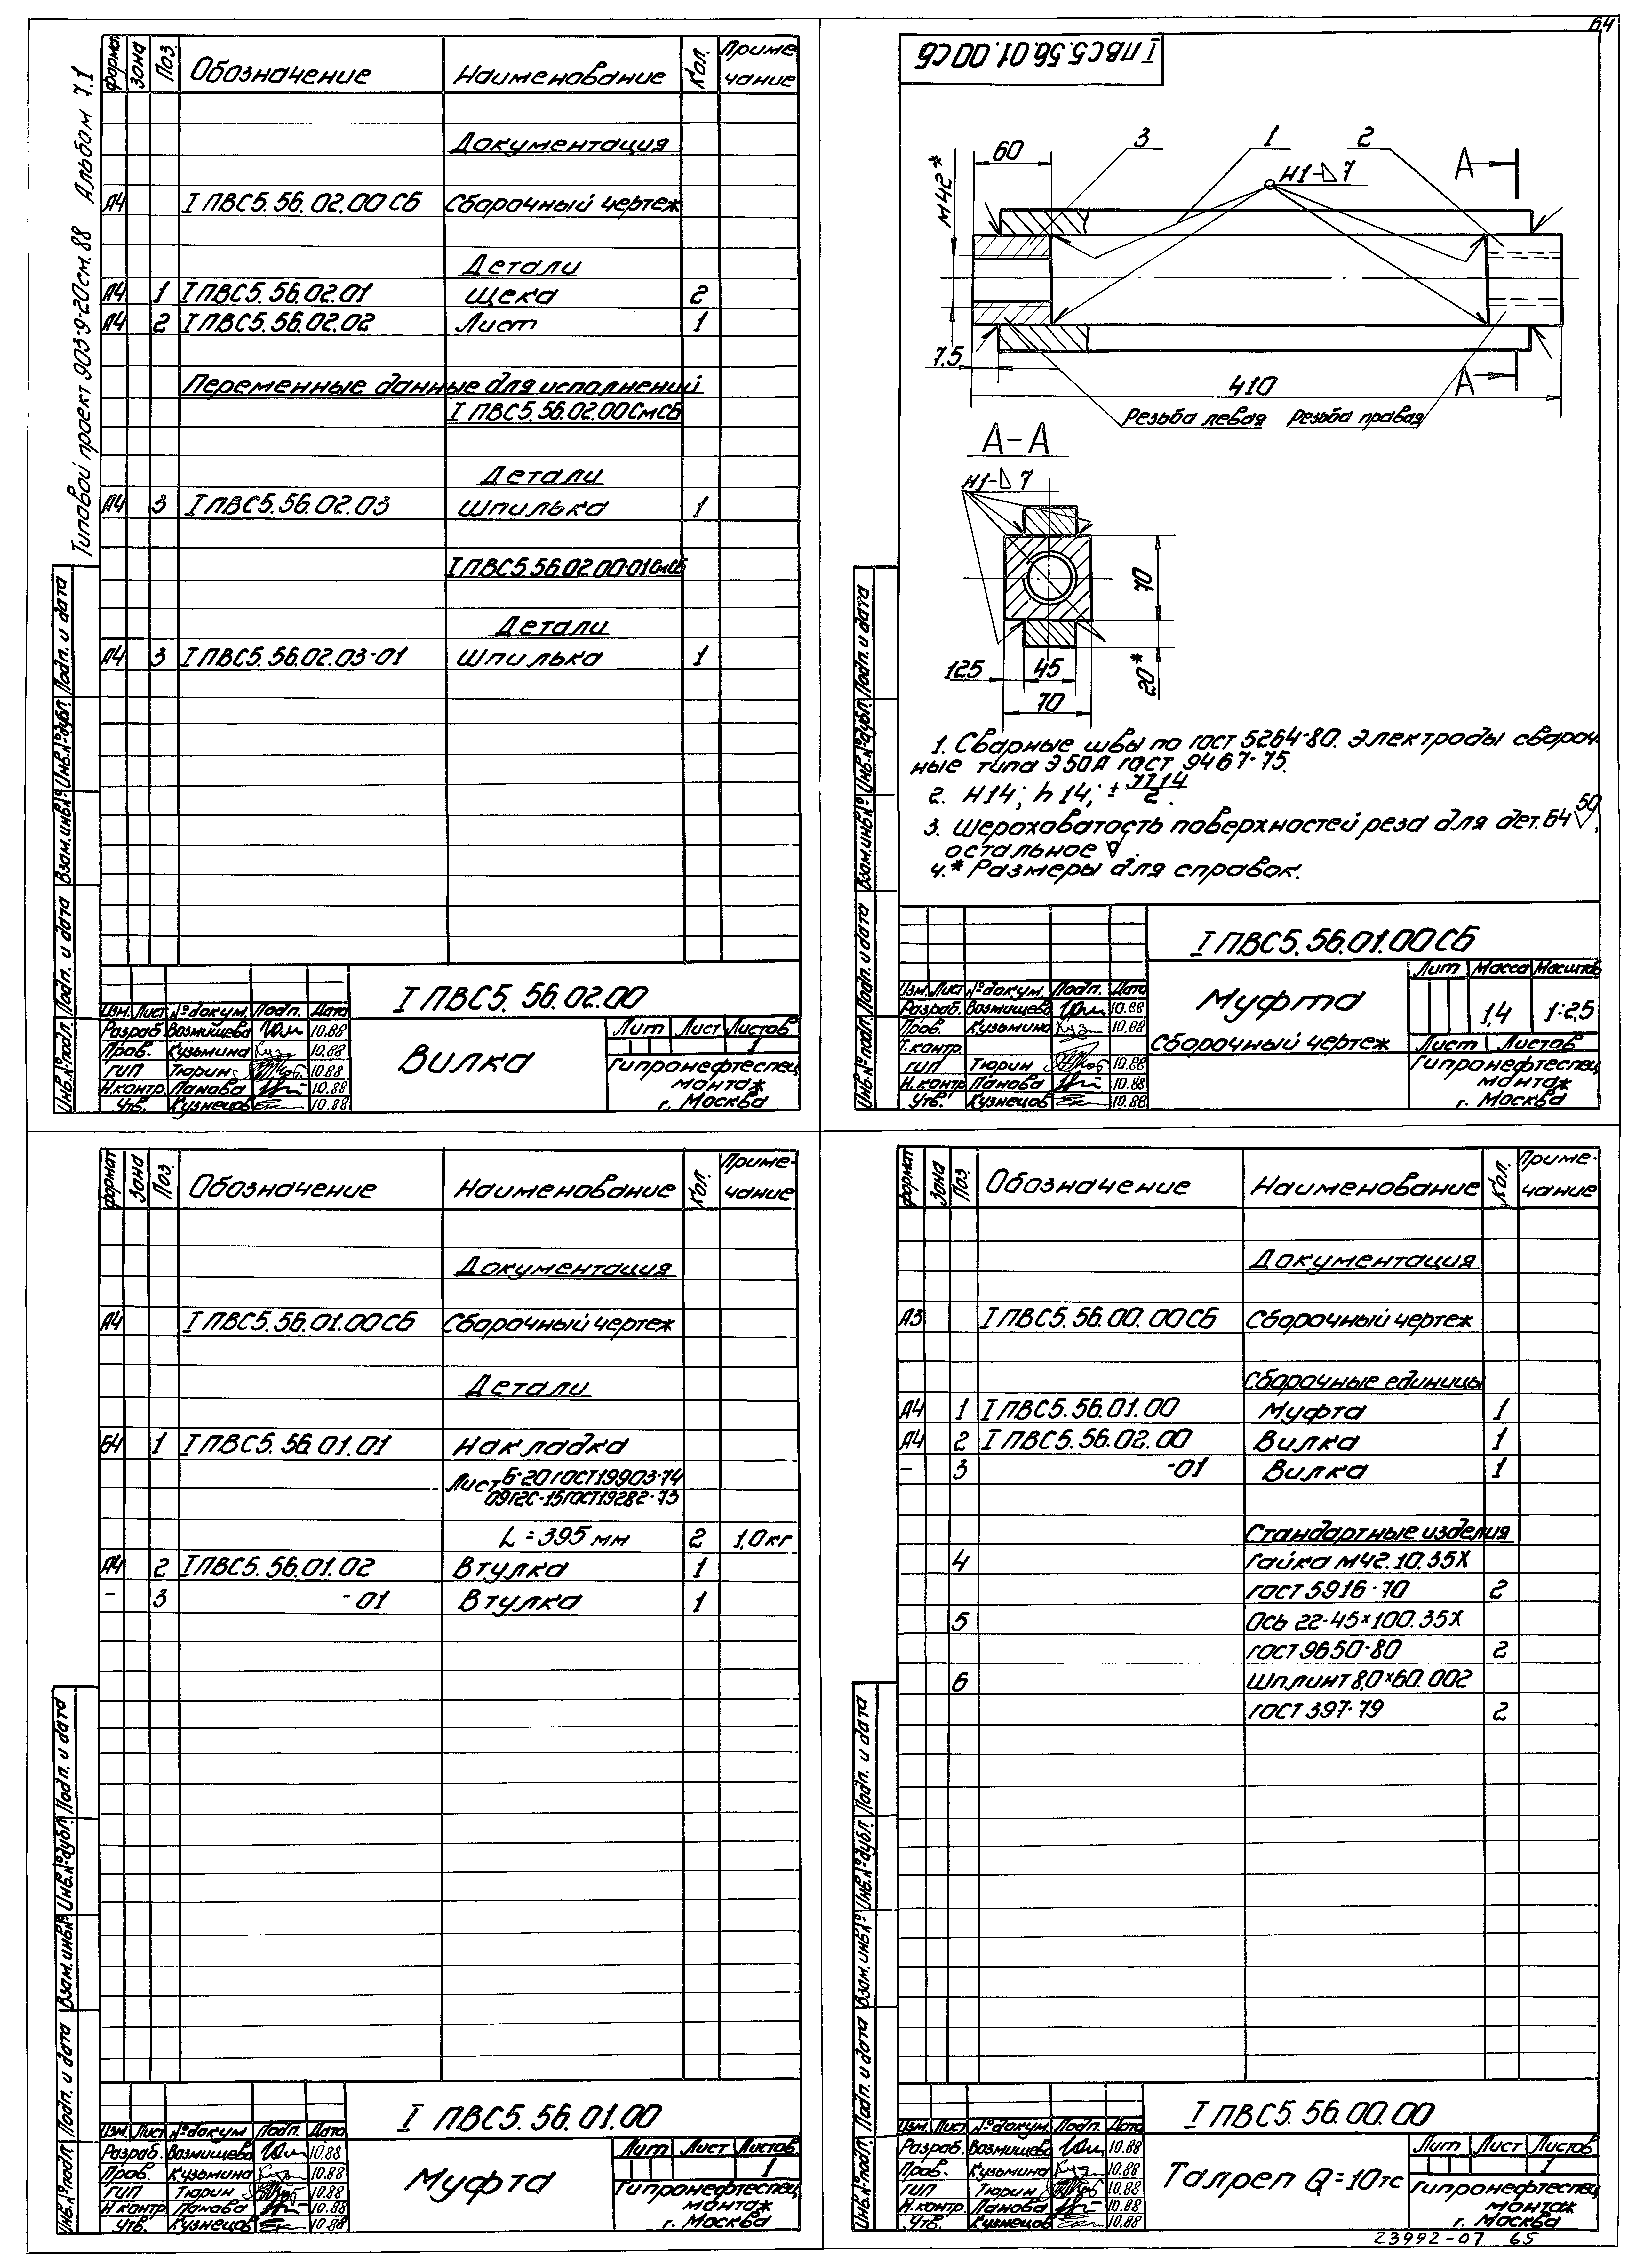 64
Типовой проект 903-9-20см.88 Альбом 7.1
Формат Зона Поз. Обозначение Наименование Кол. Примечание
Документация
А4 I ПВС5.56.02.00СБ Сборочный чертеж
Детали
А4 1 I ПВС5.56.02.01 Щека 2
А4 2 I ПВС5.56.02.02 Лист 1
Переменные данные для исполнений
I ПВС5.56.02.00СмСБ
Детали
А4 3 I ПВС5.56.02.03 Шпилька 1
I ПВС5.56.02.00-01СмСБ
Детали
А4 3 I ПВС5.56.02.03-01 Шпилька 1
Инв.№подл. Подп. и дата Взам.инв.№ Инв.№дубл. Подп. и дата
I ПВС5.56.02.00
Изм. Лист №докум. Подп. Дата
Разраб. Возмищева 10.88
Пров. Кузьмина 10.88
ГИП Тюрин 10.88
Н.контр. Панова 10.88
Утв. Кузнецов 10.88
Вилка
Лит Лист Листов
1
Гипронефтеспец
монтаж
г. Москва
I ПВС5.56.01.00СБ
60
3 1 2
А
Н1-⊿7
М42*
7.5
410
А
Резьба левая Резьба правая
А-А
Н1-⊿7
70
20*
12,5 45
70
1. Сварные швы по ГОСТ 5264-80. Электроды свароч-
ные типа Э50А ГОСТ 9467-75.
2. Н14; h14; ± IT14/2.
3. Шероховатость поверхностей реза для дет. Б4 50,
остальное
4.* Размеры для справок.
Инв.№подл. Подп. и дата Взам.инв.№ Инв.№дубл. Подп. и дата
I ПВС5.56.01.00СБ
Изм. Лист №докум. Подп. Дата
Разраб. Возмищева 10.88
Пров. Кузьмина 10.88
Т.контр.
ГИП Тюрин 10.88
Н.контр. Панова 10.88
Утв. Кузнецов 10.88
Муфта
Сборочный чертеж
Лит Масса Масштаб
1,4 1:2,5
Лист Листов
Гипронефтеспец
монтаж
г. Москва
Формат Зона Поз. Обозначение Наименование Кол. Приме-чание
Документация
А4 I ПВС5.56.01.00СБ Сборочный чертеж
Детали
Б4 1 I ПВС5.56.01.01 Накладка
Лист Б-20 ГОСТ19903-74
09Г2С-15 ГОСТ19282-73
L=395 мм 2 1,0кг
А4 2 I ПВС5.56.01.02 Втулка 1
- 3 -01 Втулка 1
Инв.№подл. Подп. и дата Взам.инв.№ Инв.№дубл. Подп. и дата
I ПВС5.56.01.00
Изм. Лист №докум. Подп. Дата
Разраб. Возмищева 10.88
Пров. Кузьмина 10.88
ГИП Тюрин 10.88
Н.контр. Панова 10.88
Утв. Кузнецов 10.88
Муфта
Лит Лист Листов
1
Гипронефтеспец
монтаж
г. Москва
Формат Зона Поз. Обозначение Наименование Кол. Приме-чание
Документация
А3 I ПВС5.56.00.00СБ Сборочный чертеж
Сборочные единицы
А4 1 I ПВС5.56.01.00 Муфта 1
А4 2 I ПВС5.56.02.00 Вилка 1
- 3 -01 Вилка 1
Стандартные изделия
4 Гайка М42.10.35Х
ГОСТ 5916-70 2
5 Ось 22-45×100.35Х
ГОСТ 9650-80 2
6 Шплинт 8,0×60.002
ГОСТ 397-79 2
Инв.№подл. Подп. и дата Взам.инв.№ Инв.№дубл. Подп. и дата
I ПВС5.56.00.00
Изм. Лист №докум. Подп. Дата
Разраб. Возмищева 10.88
Пров. Кузьмина 10.88
ГИП Тюрин 10.88
Н.контр. Панова 10.88
Утв. Кузнецов 10.88
Талреп Q=10тс
Лит Лист Листов
1
Гипронефтеспец
монтаж
г. Москва
23992-07 65